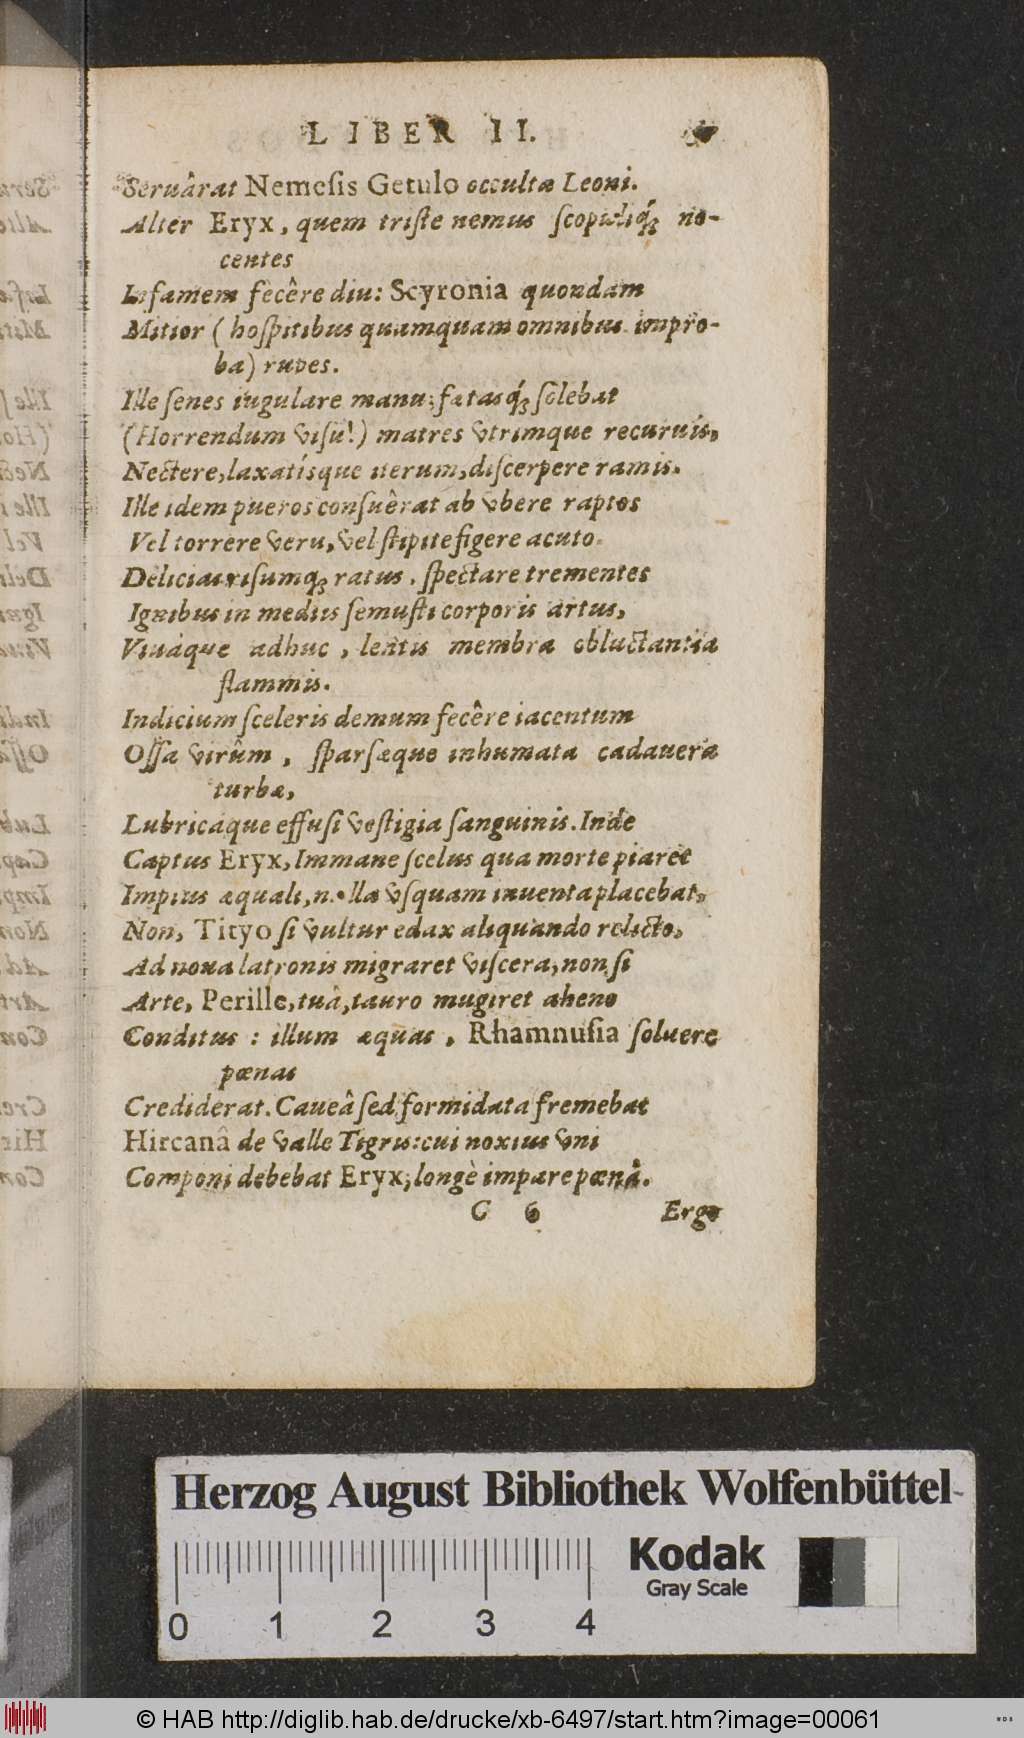 LIBER II.
Seruârat Nemesis Getulo occultæ Leoni.
Alter Eryx, quem triste nemus scopuliq́; no-
centes
Infamem fecêre diu: Scyronia quondam
Mitior (hospitibus quamquam omnibus impro-
ba) rupes.
Ille senes iugulare manu; fœtasq́; solebat
(Horrendum visu!) matres vtrimque recuruis,
Nectere, laxatísque iterum, discerpere ramis.
Ille idem pueros consuêrat ab vbere raptos
Vel torrere veru, vel stipite figere acuto.
Delicias risumq; ratus, spectare trementes
Ignibus in mediis semusti corporis artus,
Viuáque adhuc, lentis membra obluctantia
flammis.
Indicium sceleris demum fecêre iacentum
Ossa virûm, sparsæque inhumata cadauera
turbæ,
Lubricáque effusi vestigia sanguinis. Inde
Captus Eryx, Immane scelus qua morte piaret
Impius æquali, nolla vsquam inuenta placebat,
Non, Tityo si vultur edax aliquando relicto,
Ad noua latronis migraret viscera, non si
Arte, Perille, tuâ, tauro mugiret aheno
Conditus: illum æquas, Rhamnusia soluere
pœnas
Crediderat. Caueâ sed formidata fremebat
Hircanâ de valle Tigris: cui noxius vni
Componi debebat Eryx; longè impare pœnâ.
C 6 Ergo
Herzog August Bibliothek Wolfenbüttel
Kodak
Gray Scale
0 1 2 3 4
© HAB http://diglib.hab.de/drucke/xb-6497/start.htm?image=00061